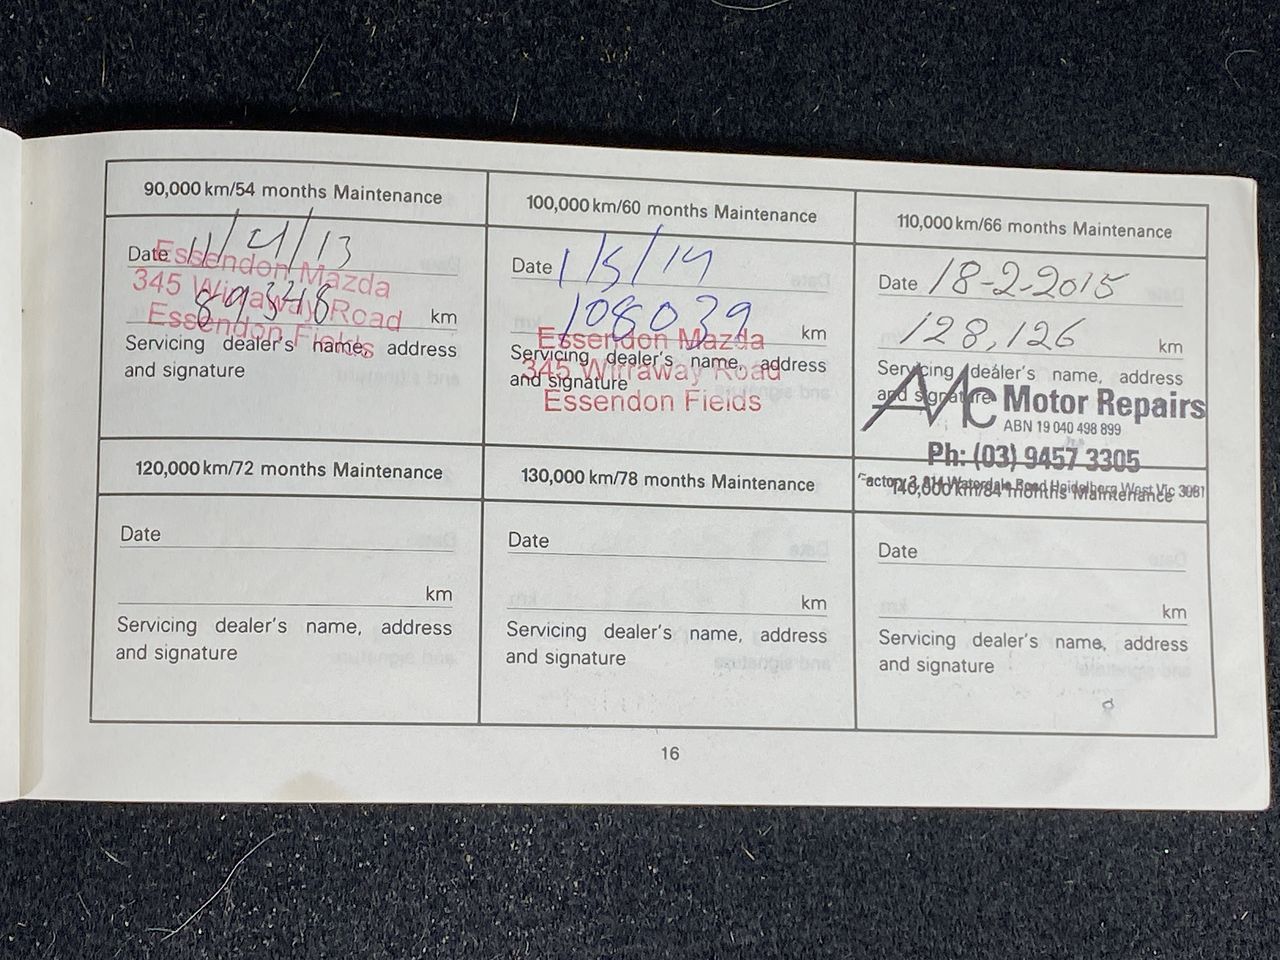 90,000 km/54 months Maintenance
Date 11/4/13
Essendon Mazda
345 Wirraway Road
Essendon Fields
89,348 km
Servicing dealer's name, address
and signature
100,000 km/60 months Maintenance
Date 1/5/14
108039 km
Essendon Mazda
Servicing dealer's name, address
345 Wirraway Road
and signature
Essendon Fields
110,000 km/66 months Maintenance
Date 18-2-2015
128,126 km
Servicing dealer's name, address
and signature
AMc Motor Repairs
ABN 19 040 498 899
Ph: (03) 9457 3305
Factory 3, Waterdale Road Heidelberg West Vic 3081
120,000 km/72 months Maintenance
Date
km
Servicing dealer's name, address
and signature
130,000 km/78 months Maintenance
Date
km
Servicing dealer's name, address
and signature
140,000 km/84 months Maintenance
Date
km
Servicing dealer's name, address
and signature
16